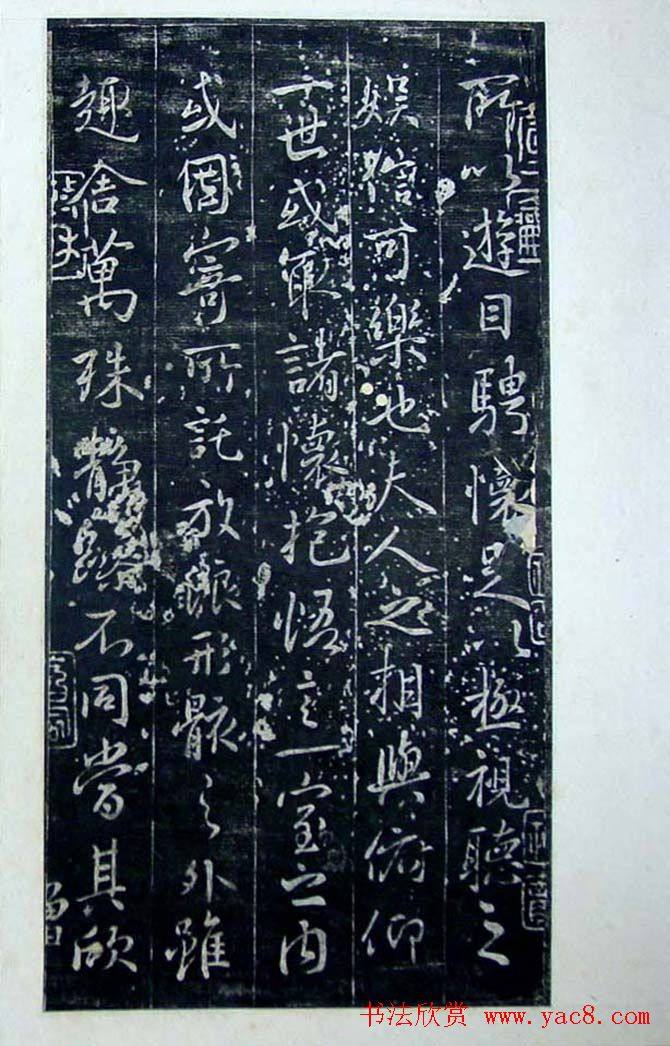 所以遊目騁懷足以極視聽之
娛信可樂也夫人之相與俯仰
一世或取諸懷抱悟言一室之內
或因寄所託放浪形骸之外雖
趣舍萬殊靜躁不同當其欣
书法欣赏 www.yac8.com